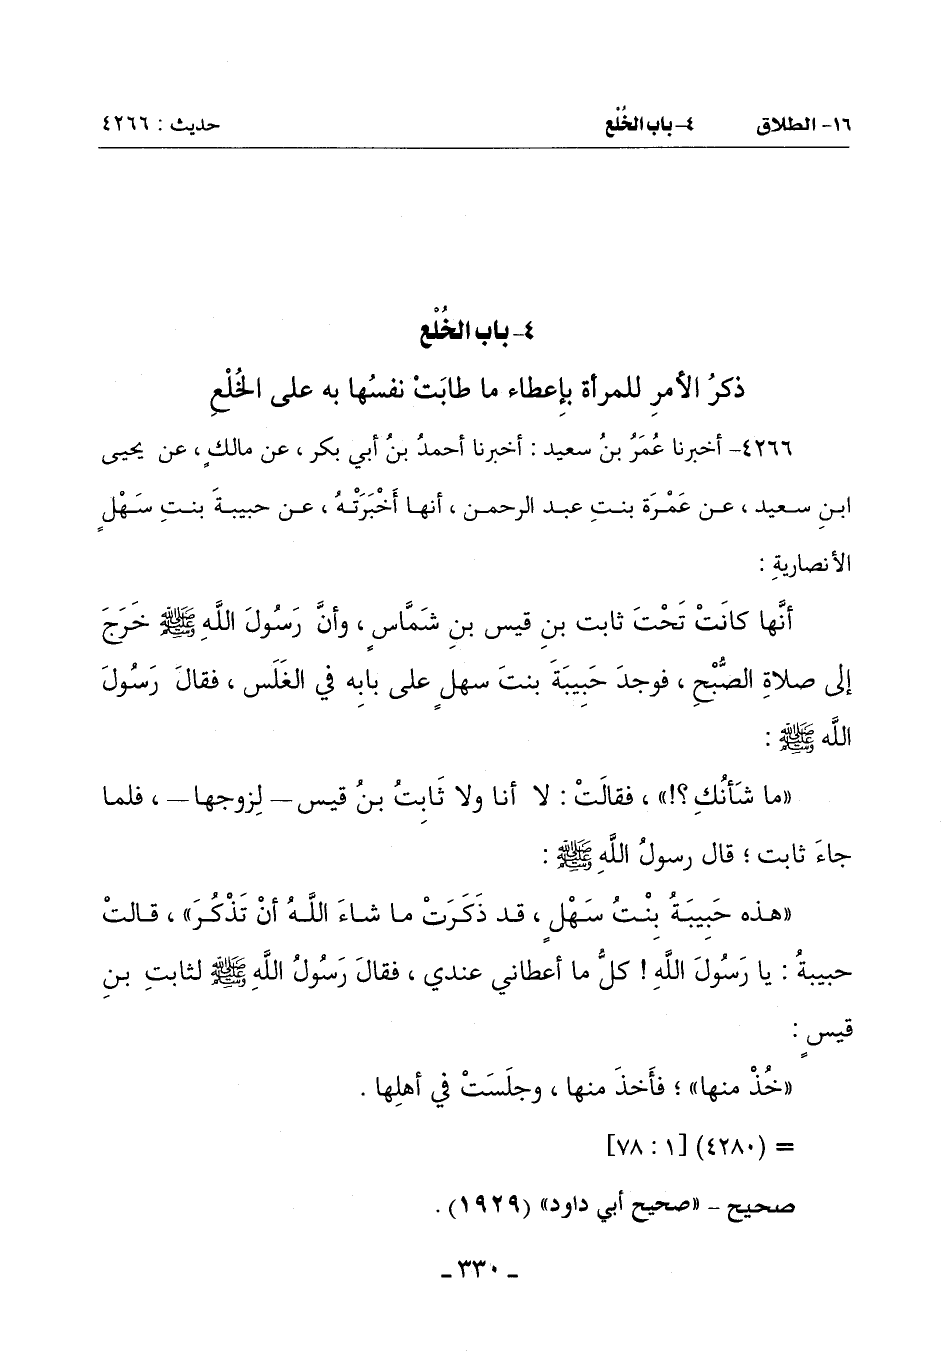 ١٦- الطلاق ٤- باب الخُلْع حديث : ٤٢٦٦
٤- باب الخُلْع
ذكرُ الأمرِ للمرأة بإِعطاء ما طابَتْ نفسُها به على الخُلْعِ
٤٢٦٦- أخبرنا عُمَرُ بنُ سعيد : أخبرنا أحمدُ بنُ أبي بكر ، عن مالكٍ ، عن يحيى
ابنِ سعيد ، عن عَمْرَة بنتِ عبد الرحمن ، أنها أَخْبَرَتْهُ ، عن حبيبةَ بنتِ سَهْلٍ
الأنصاريةِ :
أنَّها كانَتْ تَحْتَ ثابت بنِ قيس بنِ شَمَّاسٍ ، وأنَّ رَسُولَ اللَّهِ ﷺ خَرَجَ
إلى صلاةِ الصُّبْحِ ، فوجدَ حَبِيبَةَ بنتَ سهلٍ على بابِه في الغَلَس ، فقالَ رَسُولُ
اللَّه ﷺ :
«ما شَأنُكِ ؟!» ، فقالَتْ : لا أنا ولا ثَابِتُ بنُ قيس – لِزوجها – ، فلما
جاءَ ثابت ؛ قال رسولُ اللَّهِ ﷺ :
«هذه حَبِيبَةُ بِنْتُ سَهْلٍ ، قد ذَكَرَتْ ما شاءَ اللَّهُ أنْ تَذْكُرَ» ، قالت
حبيبةُ : يا رَسُولَ اللَّهِ ! كلُّ ما أعطاني عندي ، فقالَ رَسُولُ اللَّهِ ﷺ لثابتِ بنِ
قيسٍ :
«خُذْ منها» ؛ فأَخذَ منها ، وجلَسَتْ في أهلِها .
= (٤٢٨٠) [١ : ٧٨]
صحيح – «صحيح أبي داود» (١٩٢٩) .
- ٣٣٠ -